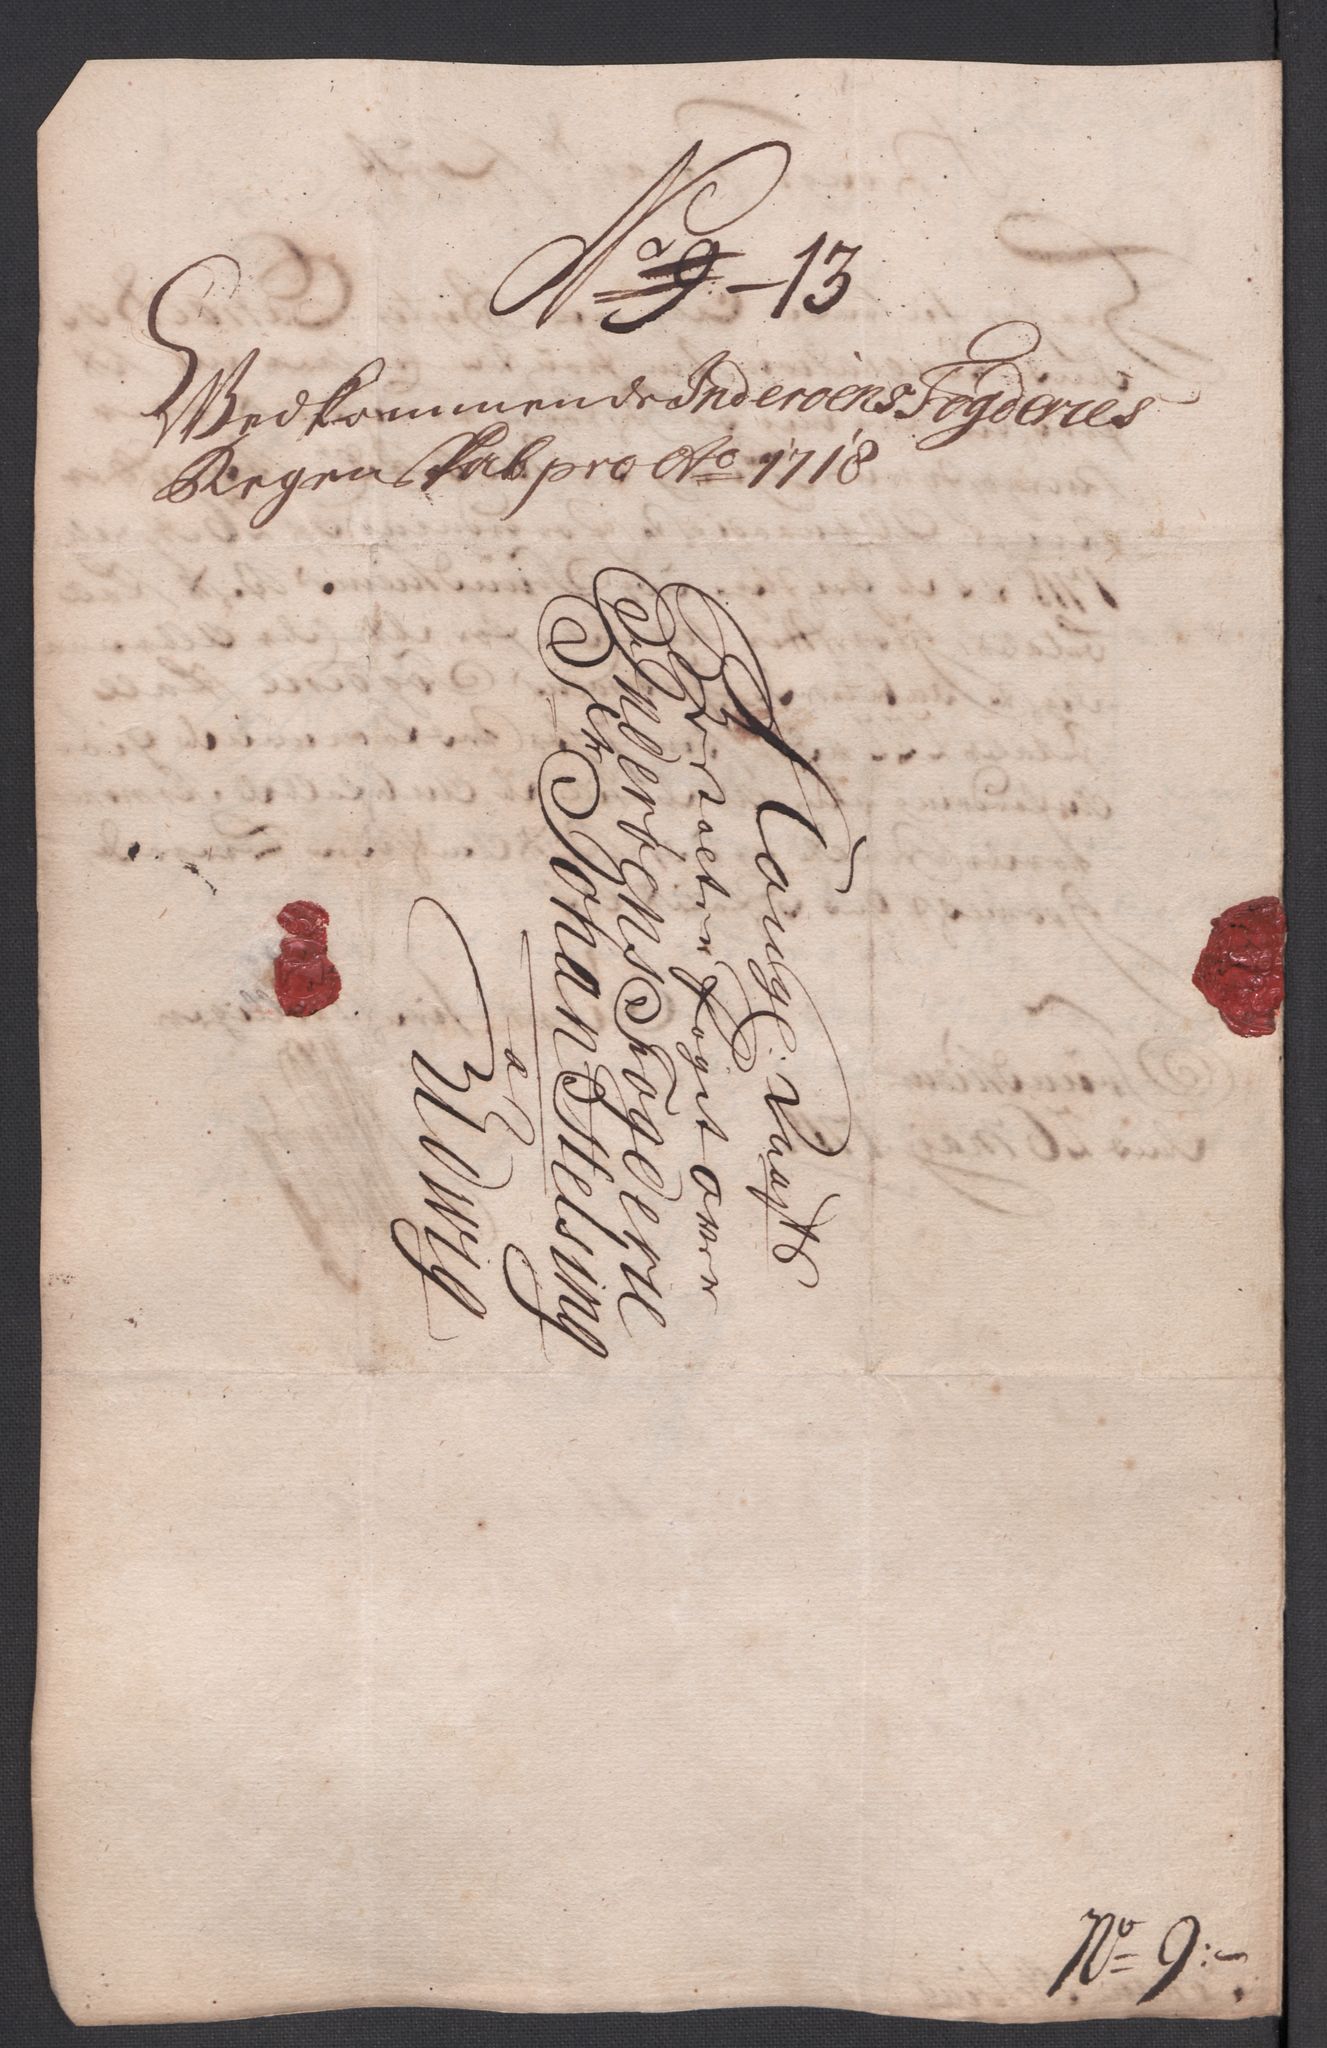 No 9 - 13
Vedkommende Inderøens Fogderies
Regenskab pro Ao 1718
Kongl: Mayts
Foget over
Inderøens Fogderie
Sr Johan Stelsing
a
No 9:-